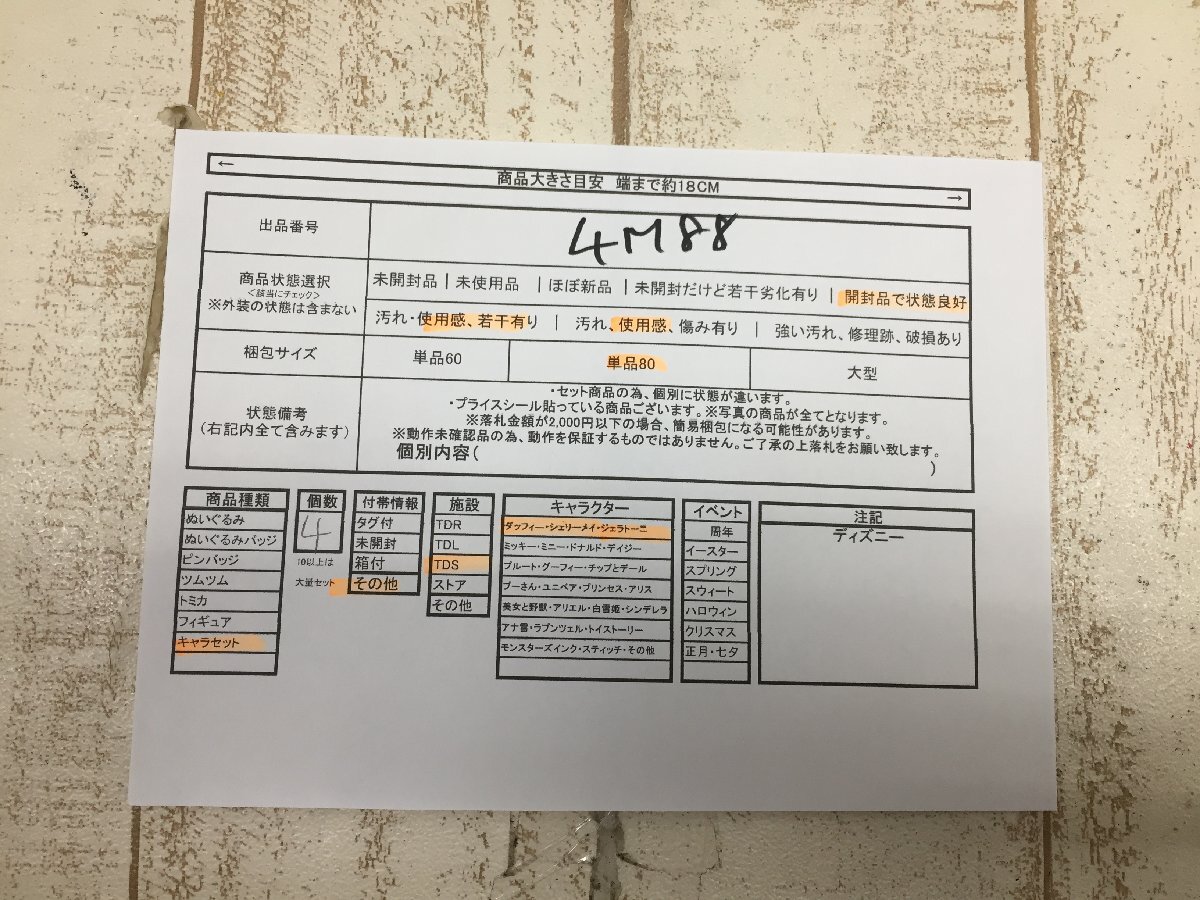 ←
商品大きさ目安 端まで約18CM
→
出品番号
4M88
商品状態選択
<該当にチェック>
※外装の状態は含まない
未開封品|未使用品 |ほぼ新品|未開封だけど若干劣化有り|開封品で状態良好
汚れ・使用感、若干有り | 汚れ、使用感、傷み有り | 強い汚れ、修理跡、破損あり
梱包サイズ
単品60
単品80
大型
状態備考
(右記内全て含みます)
・セット商品の為、個別に状態が違います。
・プライスシール貼っている商品ございます。※写真の商品が全てとなります。
※落札金額が2,000円以下の場合、簡易梱包になる可能性があります。
※動作未確認品の為、動作を保証するものではありません。ご了承の上落札をお願い致します。
個別内容( )
商品種類
ぬいぐるみ
ぬいぐるみバッジ
ピンバッジ
ツムツム
トミカ
フィギュア
キャラセット
個数
4
10以上は
大量セット
付帯情報
タグ付
未開封
箱付
その他
施設
TDR
TDL
TDS
ストア
その他
キャラクター
ダッフィー・シェリーメイ・ジェラトーニ
ミッキー・ミニー・ドナルド・デイジー
プルート・グーフィー・チップとデール
プーさん・ユニベア・プリンセス・アリス
美女と野獣・アリエル・白雪姫・シンデレラ
アナ雪・ラプンツェル・トイストーリー
モンスターズインク・スティッチ・その他
イベント
周年
イースター
スプリング
スウィート
ハロウィン
クリスマス
正月・七夕
注記
ディズニー